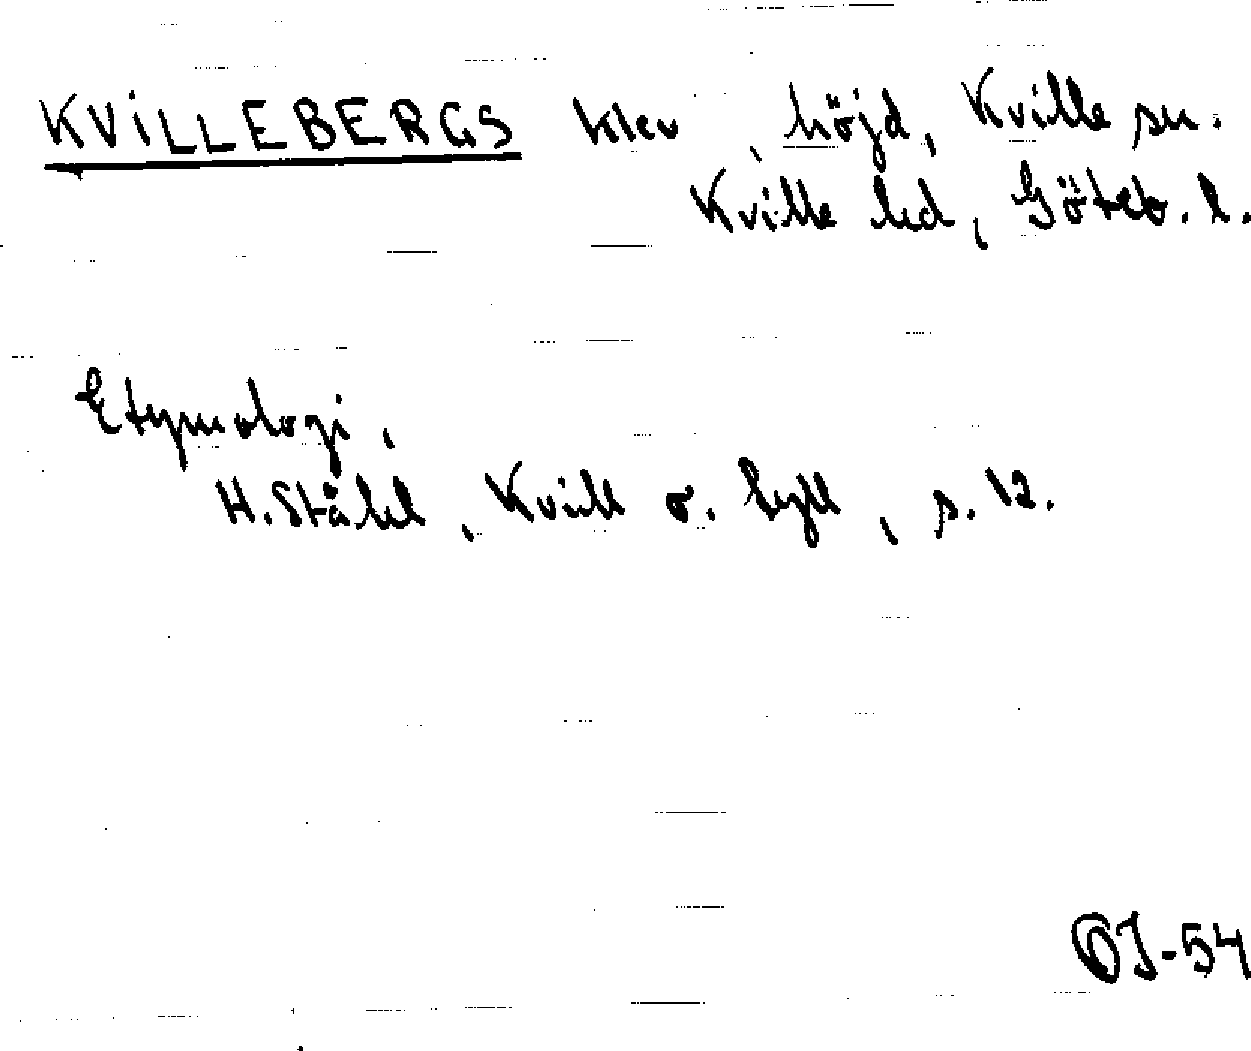 KVILLEBERGS klev, höjd, Kville sn.
Kville hd, Göteb. l.
Etymologi.
H. Ståhl, Kvill o. tyll, s. 12.
OJ-54